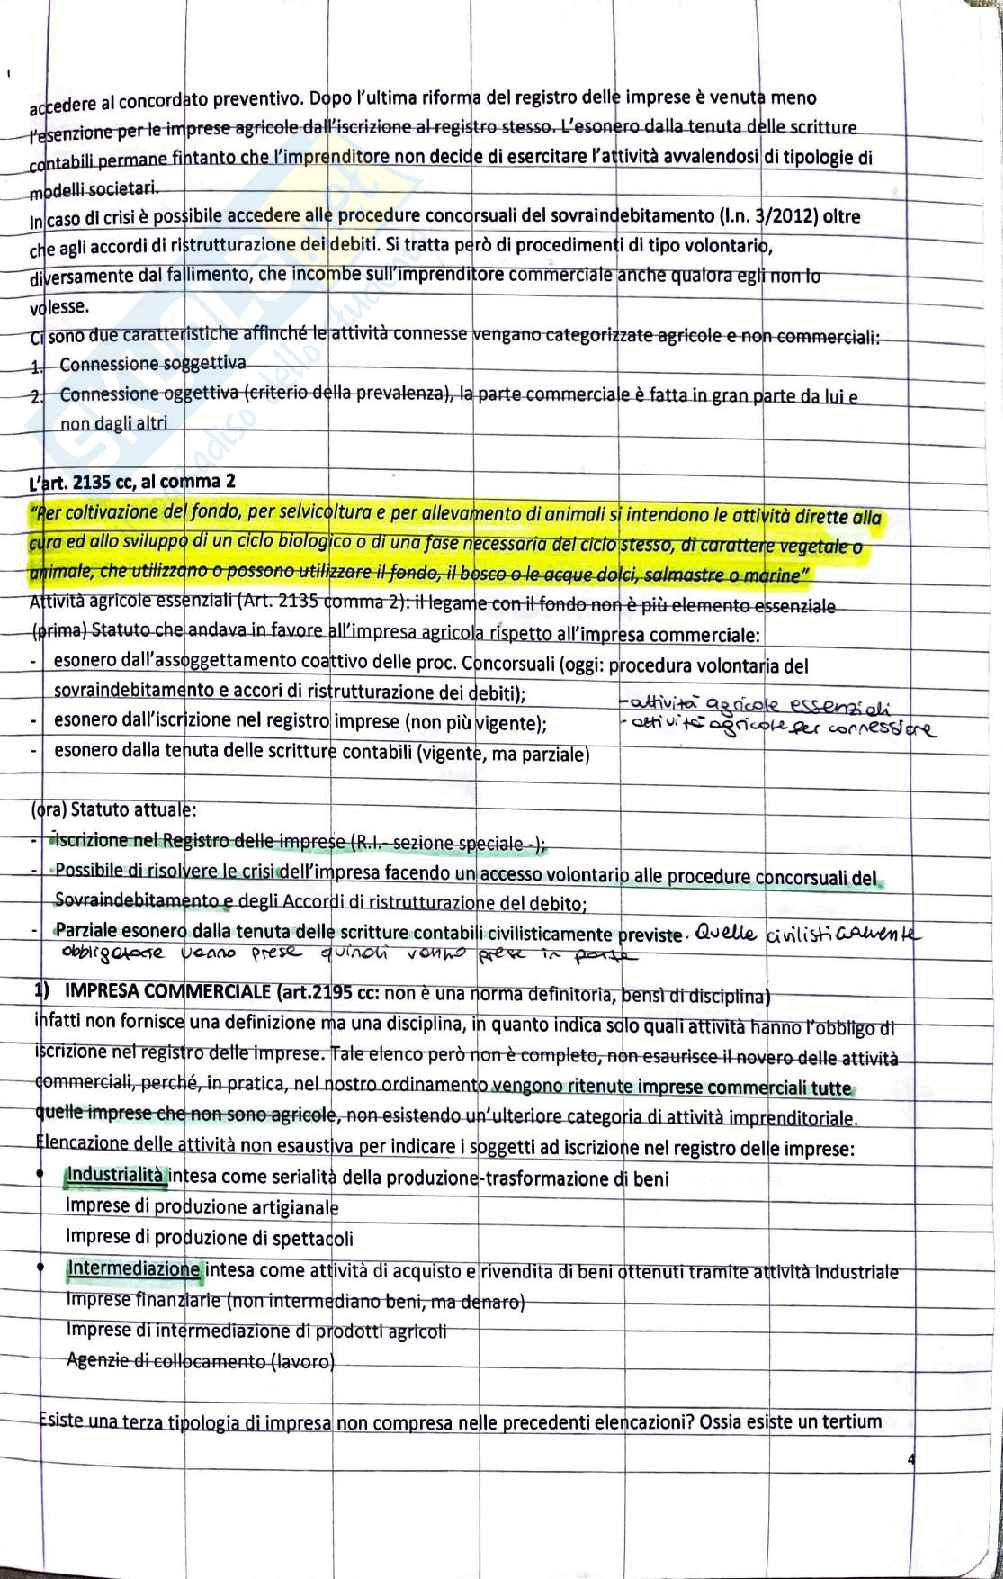 accedere al concordato preventivo. Dopo l'ultima riforma del registro delle imprese è venuta meno
l'esenzione per le imprese agricole dall'iscrizione al registro stesso. L'esonero dalla tenuta delle scritture
contabili permane fintanto che l'imprenditore non decide di esercitare l'attività avvalendosi di tipologie di
modelli societari.
In caso di crisi è possibile accedere alle procedure concorsuali del sovraindebitamento (l.n. 3/2012) oltre
che agli accordi di ristrutturazione dei debiti. Si tratta però di procedimenti di tipo volontario,
diversamente dal fallimento, che incombe sull'imprenditore commerciale anche qualora egli non lo
volesse.
Ci sono due caratteristiche affinché le attività connesse vengano categorizzate agricole e non commerciali:
1. Connessione soggettiva
2. Connessione oggettiva (criterio della prevalenza), la parte commerciale è fatta in gran parte da lui e
non dagli altri
L'art. 2135 cc, al comma 2
"Per coltivazione del fondo, per selvicoltura e per allevamento di animali si intendono le attività dirette alla
cura ed allo sviluppo di un ciclo biologico o di una fase necessaria del ciclo stesso, di carattere vegetale o
animale, che utilizzano o possono utilizzare il fondo, il bosco o le acque dolci, salmastre o marine"
Attività agricole essenziali (Art. 2135 comma 2): il legame con il fondo non è più elemento essenziale
(prima) Statuto che andava in favore all'impresa agricola rispetto all'impresa commerciale:
- esonero dall'assoggettamento coattivo delle proc. Concorsuali (oggi: procedura volontaria del
sovraindebitamento e accori di ristrutturazione dei debiti);
- attività agricole essenziali
- esonero dall'iscrizione nel registro imprese (non più vigente);
- attività agricole per connessione
- esonero dalla tenuta delle scritture contabili (vigente, ma parziale)
(ora) Statuto attuale:
- iscrizione nel Registro delle imprese (R.I.- sezione speciale -);
- Possibile di risolvere le crisi dell'impresa facendo un accesso volontario alle procedure concorsuali del
Sovraindebitamento e degli Accordi di ristrutturazione del debito;
- Parziale esonero dalla tenuta delle scritture contabili civilisticamente previste. Quelle civilisticamente
obbligatorie vanno prese quindi vanno prese in parte
1) IMPRESA COMMERCIALE (art.2195 cc: non è una norma definitoria, bensì di disciplina)
infatti non fornisce una definizione ma una disciplina, in quanto indica solo quali attività hanno l'obbligo di
iscrizione nel registro delle imprese. Tale elenco però non è completo, non esaurisce il novero delle attività
commerciali, perché, in pratica, nel nostro ordinamento vengono ritenute imprese commerciali tutte
quelle imprese che non sono agricole, non esistendo un'ulteriore categoria di attività imprenditoriale.
Elencazione delle attività non esaustiva per indicare i soggetti ad iscrizione nel registro delle imprese:
• Industrialità intesa come serialità della produzione-trasformazione di beni
Imprese di produzione artigianale
Imprese di produzione di spettacoli
• Intermediazione intesa come attività di acquisto e rivendita di beni ottenuti tramite attività industriale
Imprese finanziarie (non intermediano beni, ma denaro)
Imprese di intermediazione di prodotti agricoli
Agenzie di collocamento (lavoro)
Esiste una terza tipologia di impresa non compresa nelle precedenti elencazioni? Ossia esiste un tertium
4